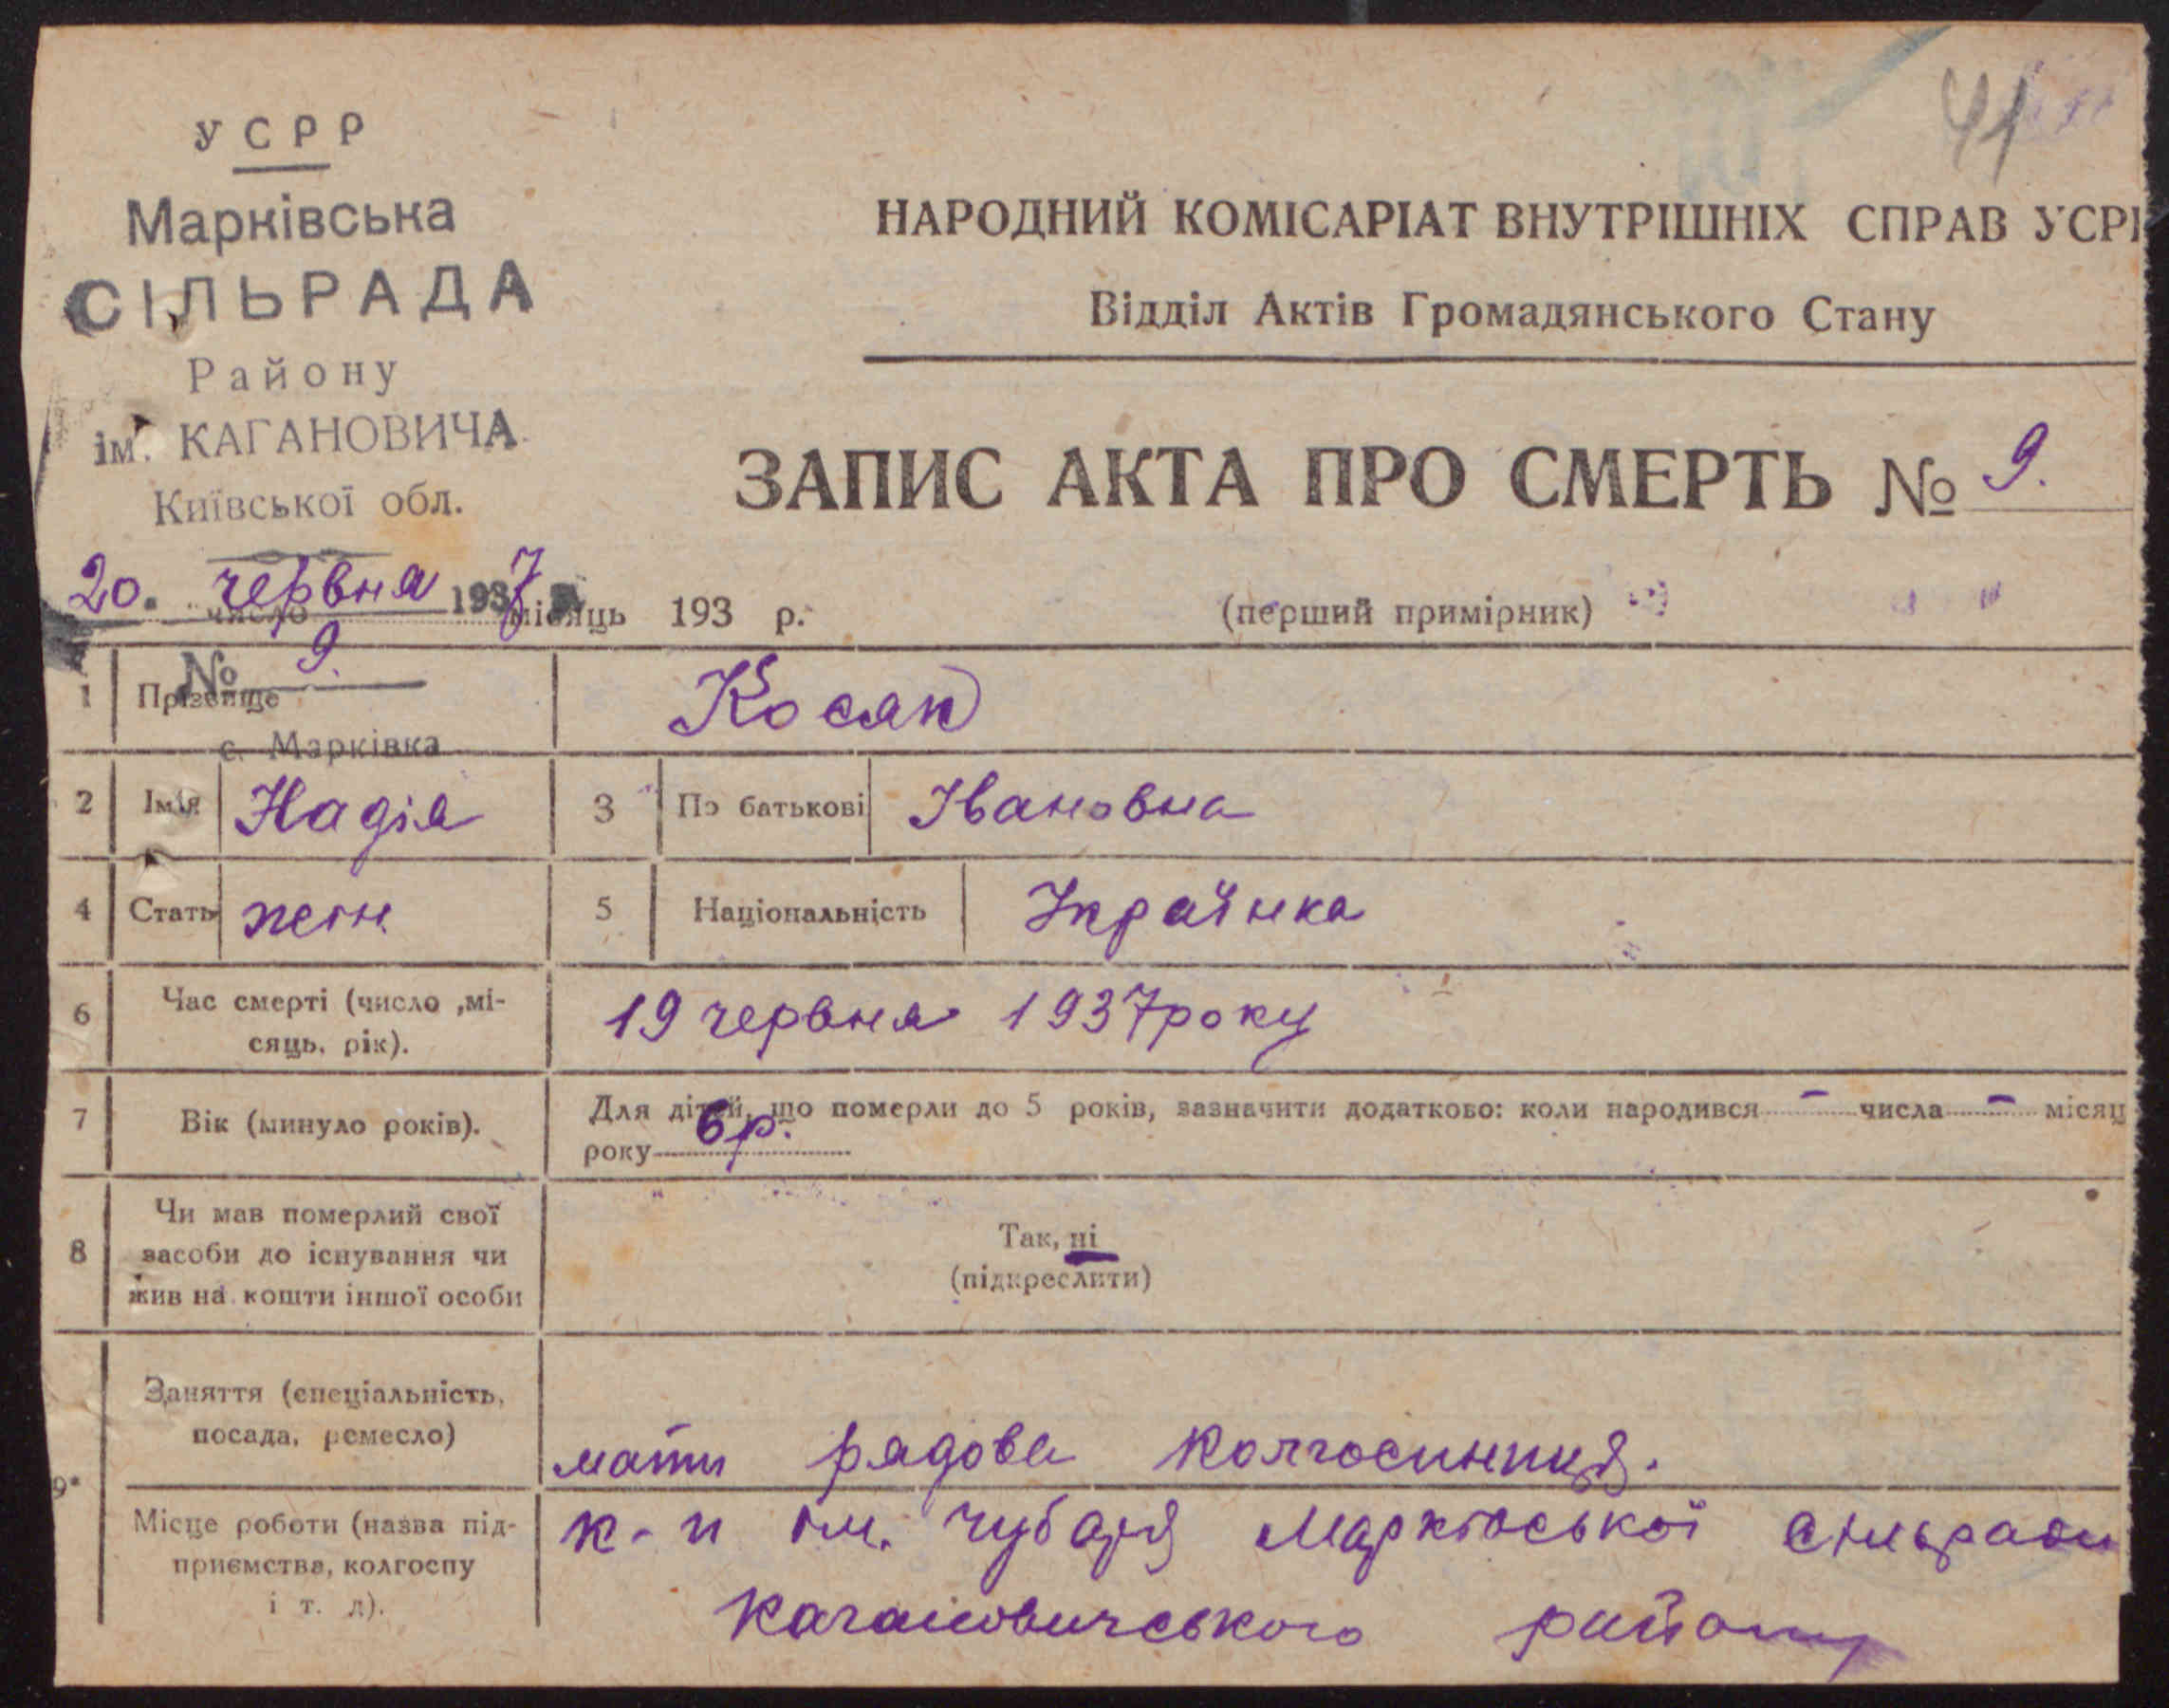 УСРР
Марківська
СІЛЬРАДА
Району
ім. КАГАНОВИЧА
Київської обл.
20. червня 1937
число місяць 193 р.
№ 9.
с. Марківка
41
НАРОДНИЙ КОМІСАРІАТ ВНУТРІШНІХ СПРАВ УСРР
Відділ Актів Громадянського Стану
ЗАПИС АКТА ПРО СМЕРТЬ № 9.
(перший примірник)
1 Прізвище Косяк
2 Імʼя Надія 3 По батькові Івановна
4 Стать жін. 5 Національність Українка
6 Час смерті (число ,мі-
сяць, рік). 19 червня 1937 року
7 Вік (минуло років). Для дітей, що померли до 5 років, зазначити додатково: коли народився - числа - місяц
року 6 р.
8 Чи мав померлий свої
засоби до існування чи
жив на кошти іншої особи
Так, ні
(підкреслити)
9 Заняття (спеціальність,
посада, ремесло)
мати рядова колгоспниця.
Місце роботи (назва під-
приємства, колгоспу
і т. д).
к-п ім. Чубаря Марківської сільради
Кагановичського району